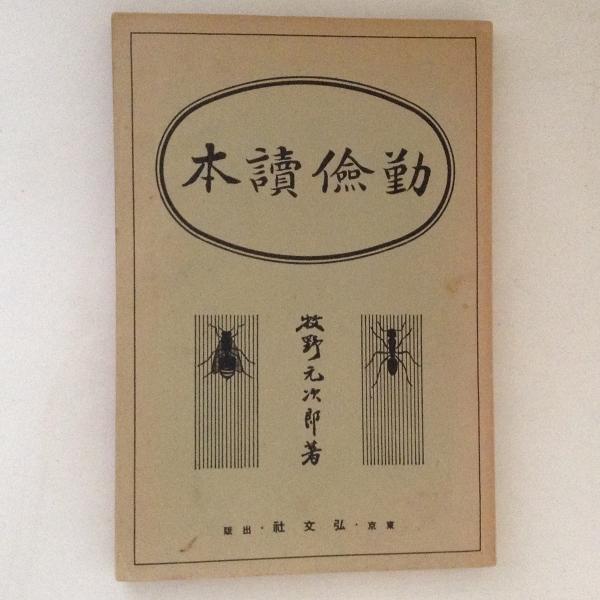 勤儉讀本
牧野元次郎著
東京・弘文社・出版